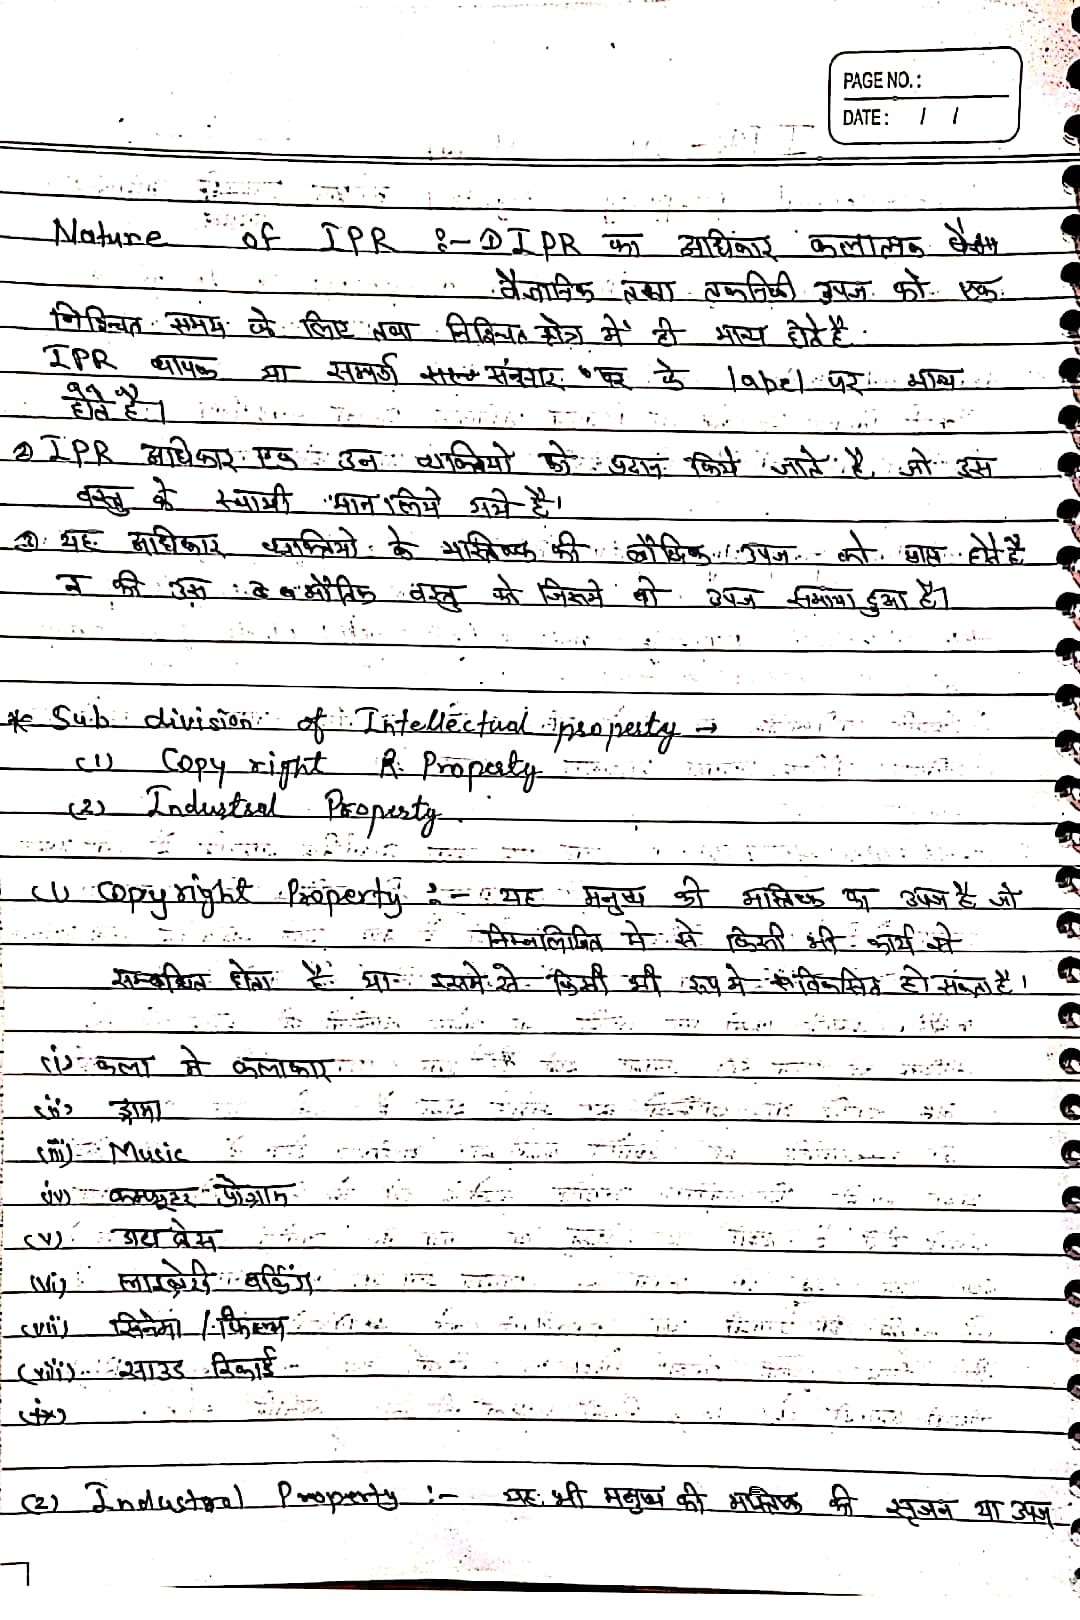 PAGE NO.:
DATE: / /
Nature of IPR :- ① IPR का अधिकार कलात्मक
वैज्ञानिक तथा तकनिकी उपज को एक
निश्चित समय के लिए तथा निश्चित क्षेत्र में ही मान्य होते है.
IPR व्यापक या सम्पूर्ण संसार के label पर मान्य
होते है।
② IPR अधिकार उन व्यक्तियो को प्रदान किये जाते है जो उस
वस्तु के स्वामी मान लिये गये है।
③ यह अधिकार व्यक्तियो के मास्तिष्क की बौद्धिक उपज को प्राप्त होते है
न की उस भौतिक वस्तु को जिसमे वो उपज समाया हुआ है।
* Sub division of Intellectual property →
(1) Copy right R. Property
(2) Industral Property
(1) Copyright Property :- यह मनुष्य की मास्तिष्क का उपज है जो
निम्नलिखित मे से किसी भी कार्य से
सम्बन्धित होता है या इसमे से किसी भी रूप मे विकसित हो सकता है।
(i) कला मे कलाकार
(ii) ड्रामा
(iii) Music
(iv) कम्प्यूटर प्रोग्राम
(v) डाटा बेस
(vi) लाइब्रेरी वर्किंग
(vii) सिनेमा / फिल्म
(viii) साउड रिकार्ड
(ix)
(2) Industral Property :- यह भी मनुष्य की मास्तिष्क की सृजन या उपज